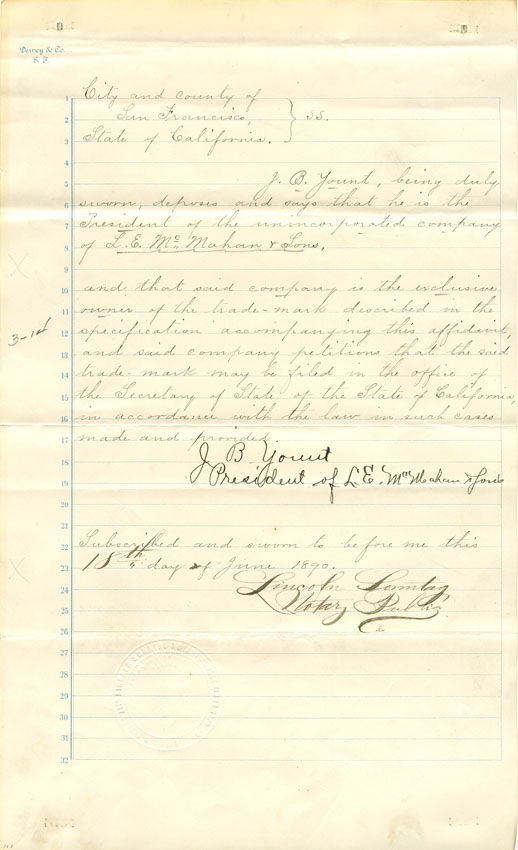 Dewey & Co.
S. F.
1 City and county of
2 San Francisco, } SS.
3 State of California.
4
5 J. B. Yount, being duly
6 sworn, deposes and says that he is the
7 President of the unincorporated company
8 of L. E. Mc Mahan & Sons,
9
10 and that said company is the exclusive
11 owner of the trade-mark described in the
12 specification accompanying this affidavit,
13 and said company petitions that the said
14 trade-mark may be filed in the office of
15 the Secretary of State of the State of California,
16 in accordance with the law in such cases
17 made and provided.
18 J. B. Yount
19 President of L. E. Mc Mahan & Sons
20
21 Subscribed and sworn to before me this
22 18th day of June 1890.
23 Lincoln Sonntag
24 Notary Public
25
26
27
28
29
30
31
32